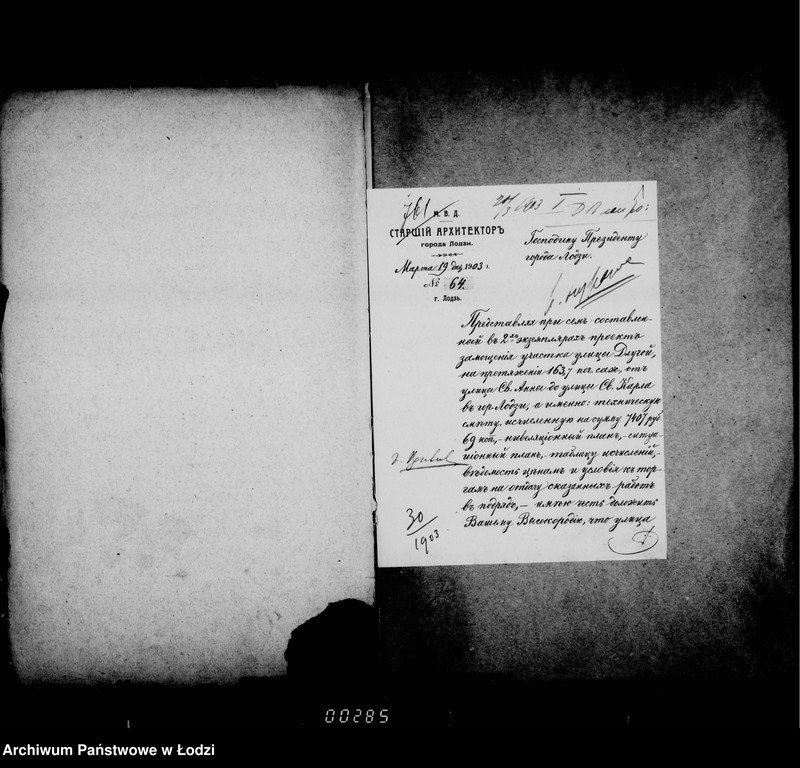 761
М. В. Д.
СТАРШІЙ АРХИТЕКТОРЪ
города Лодзи.
Марта 19 дня 1903 г.
№ 64.
г. Лодзь.
20/3 1903
Господину Президенту
города Лодзи.
Представляя при семъ составлен-
ный въ 2хъ экземплярахъ проектъ
замощенія участка улицы Длугой,
на протяженіи 163,7 пог. саж., отъ
улицы Св. Анны до улицы Св. Карла
въ гор. Лодзи, а именно: техническую
смѣту, исчисленную на сумму 7407 руб.
69 коп., - нивеляціонный планъ, - ситуа-
ціонный планъ, - таблицу исчисленій, -
вѣдомость цѣнамъ и условія къ тор-
гамъ на отдачу сказанныхъ работъ
въ подрядъ, - имѣю честь доложить
Вашему Высокородію, что улица
30/1903
1
00285
Archiwum Państwowe w Łodzi